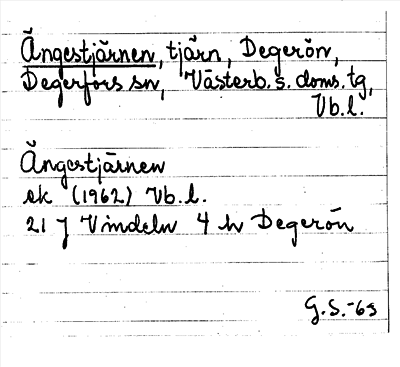 Ängestjärnen, tjärn, Degerön,
Degerfors sn, Västerb. s. doms. tg,
Vb.l.
Ängestjärnen
ek (1962) Vb.l.
21 J Vindeln 4 h Degerön
G.S.-65